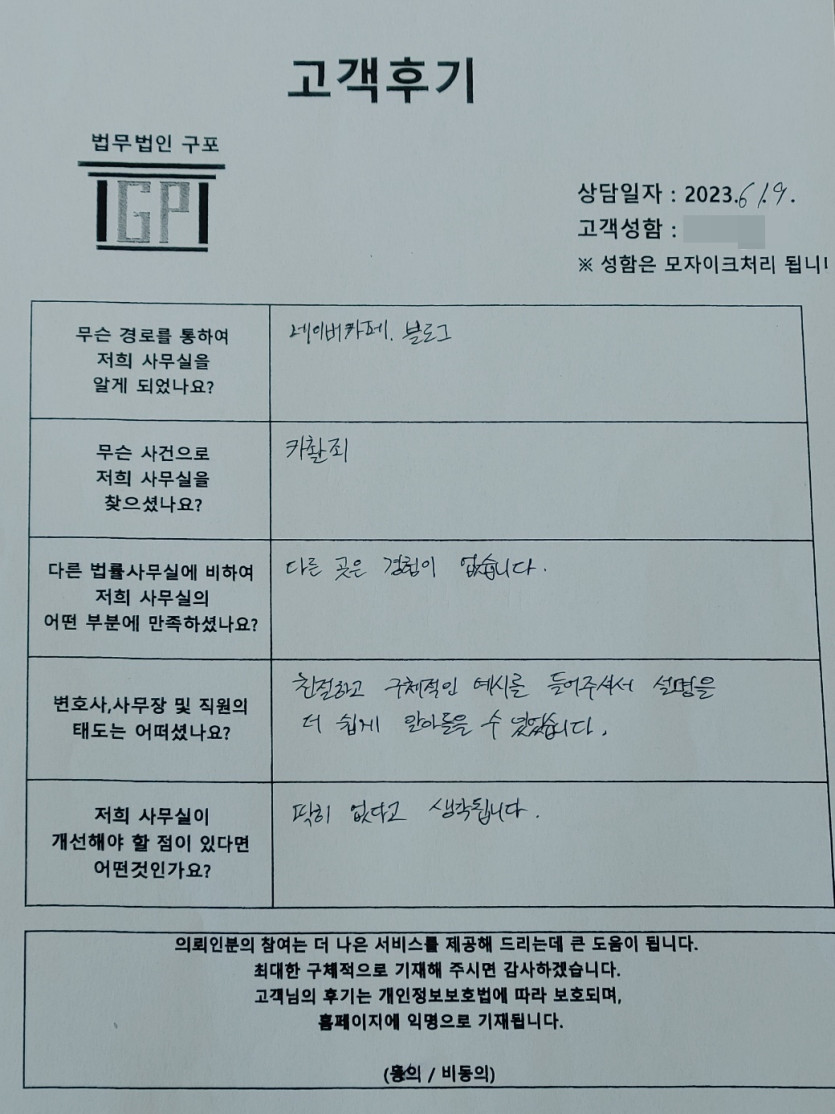 고객후기
법무법인 구포
GP
상담일자 : 2023.6/.9.
고객성함 :
※ 성함은 모자이크처리 됩니
무슨 경로를 통하여
저희 사무실을
알게 되었나요?
네이버카페. 블로그
무슨 사건으로
저희 사무실을
찾으셨나요?
카촬죄
다른 법률사무실에 비하여
저희 사무실의
어떤 부분에 만족하셨나요?
다른 곳은 경험이 없습니다.
변호사,사무장 및 직원의
태도는 어떠셨나요?
친절하고 구체적인 예시를 들어주셔서 설명을
더 쉽게 알아들을 수 있었습니다.
저희 사무실이
개선해야 할 점이 있다면
어떤것인가요?
딱히 없다고 생각됩니다.
의뢰인분의 참여는 더 나은 서비스를 제공해 드리는데 큰 도움이 됩니다.
최대한 구체적으로 기재해 주시면 감사하겠습니다.
고객님의 후기는 개인정보보호법에 따라 보호되며,
홈페이지에 익명으로 기재됩니다.
(동의 / 비동의)